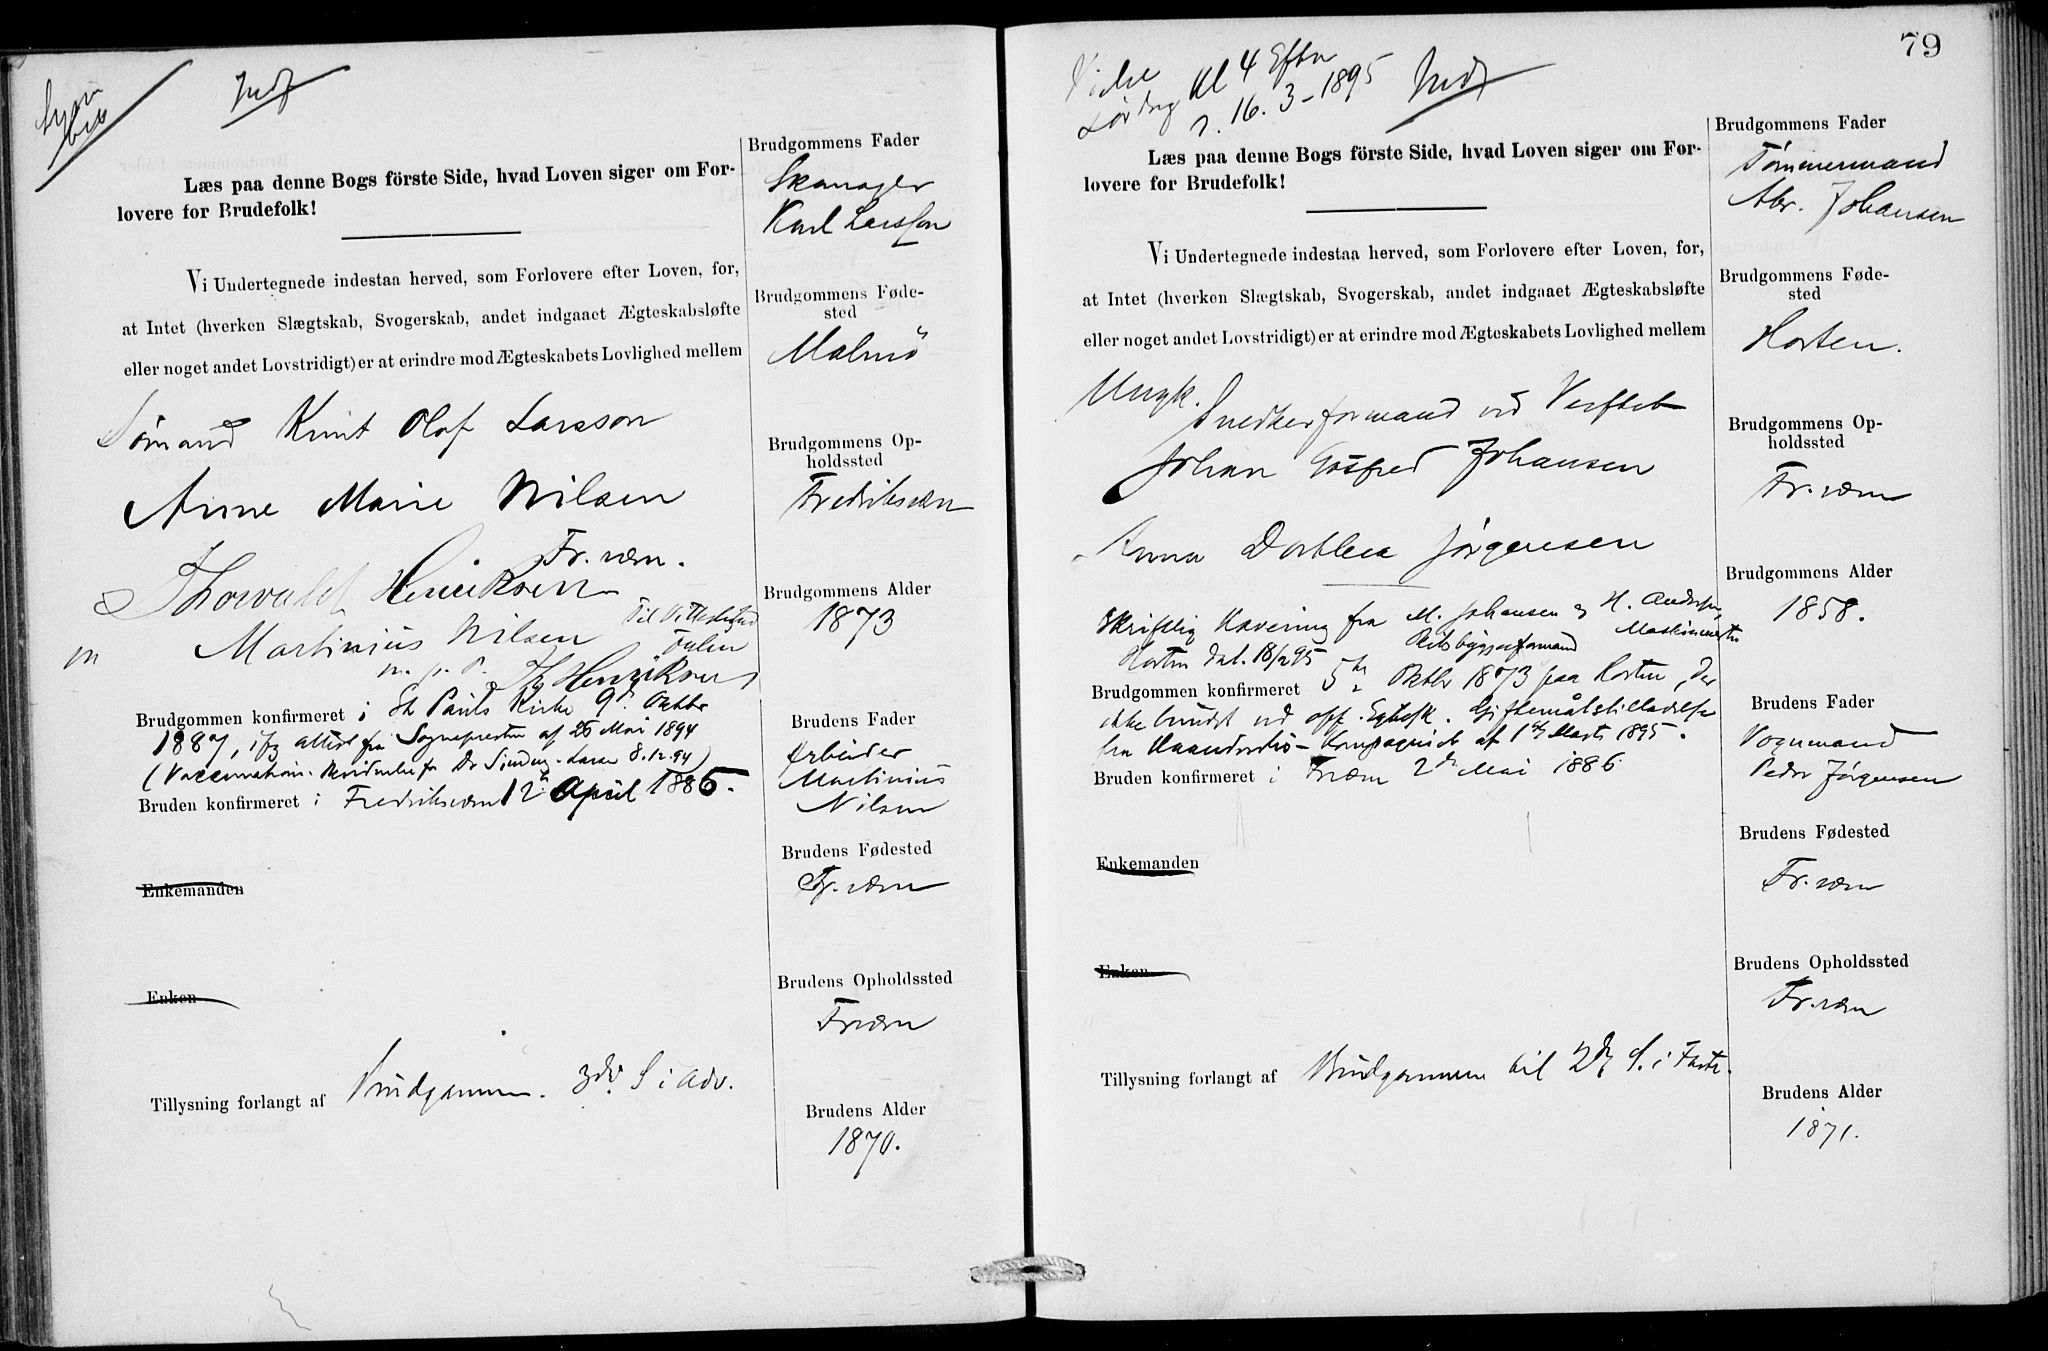 Indf
Læs paa denne Bogs förste Side, hvad Loven siger om For-
lovere for Brudefolk!
Vi Undertegnede indestaa herved, som Forlovere efter Loven, for,
at Intet (hverken Slægtskab, Svogerskab, andet indgaaet Ægteskabsløfte
eller noget andet Lovstridigt) er at erindre mod Ægteskabets Lovlighed mellem
Sömand Knut Olof Larsson
Anne Marie Nilsen
Fr.værn.
Thorvald Henriksen
Martinius Nilsen
m. p. P.
Th Henriksen
Brudgommen konfirmeret i St Pauls Kirke 9d Oktbr
1887, ifg attest fra Sognepresten af 26 Mai 1894
(Vaccination. fra Dr 8.12.94)
Bruden konfirmeret i Fredriksværn 12te April 1885.
Enkemanden
Enken
Tillysning forlangt af Brudgommen. 3die S i Adv.
Brudgommens Fader
Skomager
Karl Larsson
Brudgommens Føde-
sted
Malmö
Brudgommens Op-
holdssted
Fredriksværn
Brudgommens Alder
1873
Brudens Fader
Arbeider
Martinius
Nilsen
Brudens Fødested
Fr.værn
Brudens Opholdssted
Frværn
Brudens Alder
1870.
79
Vielse
Lördag Kl 4 Efterm
d. 16. 3-1895
Indf
Læs paa denne Bogs förste Side, hvad Loven siger om For-
lovere for Brudefolk!
Vi Undertegnede indestaa herved, som Forlovere efter Loven, for,
at Intet (hverken Slægtskab, Svogerskab, andet indgaaet Ægteskabsløfte
eller noget andet Lovstridigt) er at erindre mod Ægteskabets Lovlighed mellem
Ungk.
Snedkerformand ved Verftet
Johan Gotfred Johansen
Anna Dorthea Jörgensen
Skriftlig Kavering fra M. Johansen og H. Andersen,
Maskinmester
Horten dat. 18/2 95
Brudgommen konfirmeret 5te Oktbr 1873 paa Horten, der
ikke bundet ved off. Egtesk. Giftemålstilladelse
fra Haandverks-Kompagniet af 1ste Marts 1895.
Bruden konfirmeret i Frværn 2den Mai 1886.
Enkemanden
Enken
Tillysning forlangt af Brudgommen til 2d S. i Faste.
Brudgommens Fader
Tömmermand
Abr. Johansen
Brudgommens Føde-
sted
Horten.
Brudgommens Op-
holdssted
Fr.værn
Brudgommens Alder
1858.
Brudens Fader
Vognmand
Peder Jörgensen
Brudens Fødested
Fr.værn
Brudens Opholdssted
Fr.værn
Brudens Alder
1871.